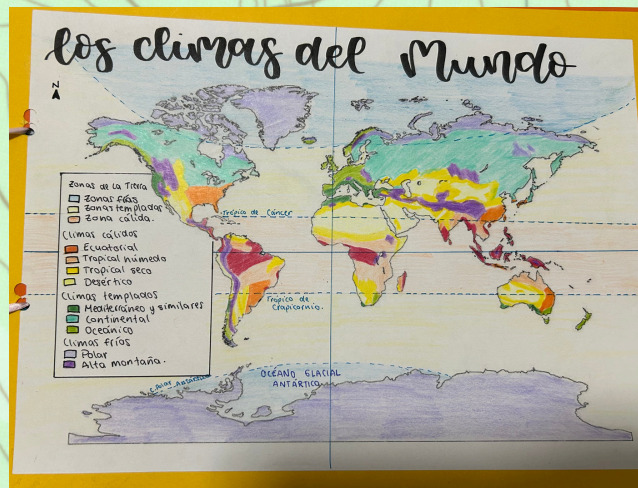 los climas del Mundo
N
Zonas de la Tierra
Zonas frías
Zonas templadas
Zona cálida.
Climas cálidos
Ecuatorial
Tropical húmedo
Tropical seco
Desértico
Climas templados
Mediterráneo y similares
Continental
Oceánico
Climas fríos
Polar
Alta montaña.
Trópico de Cáncer
Trópico de
Crapicornio.
C. Polar Antártico
OCÉANO GLACIAL
ANTÁRTICO